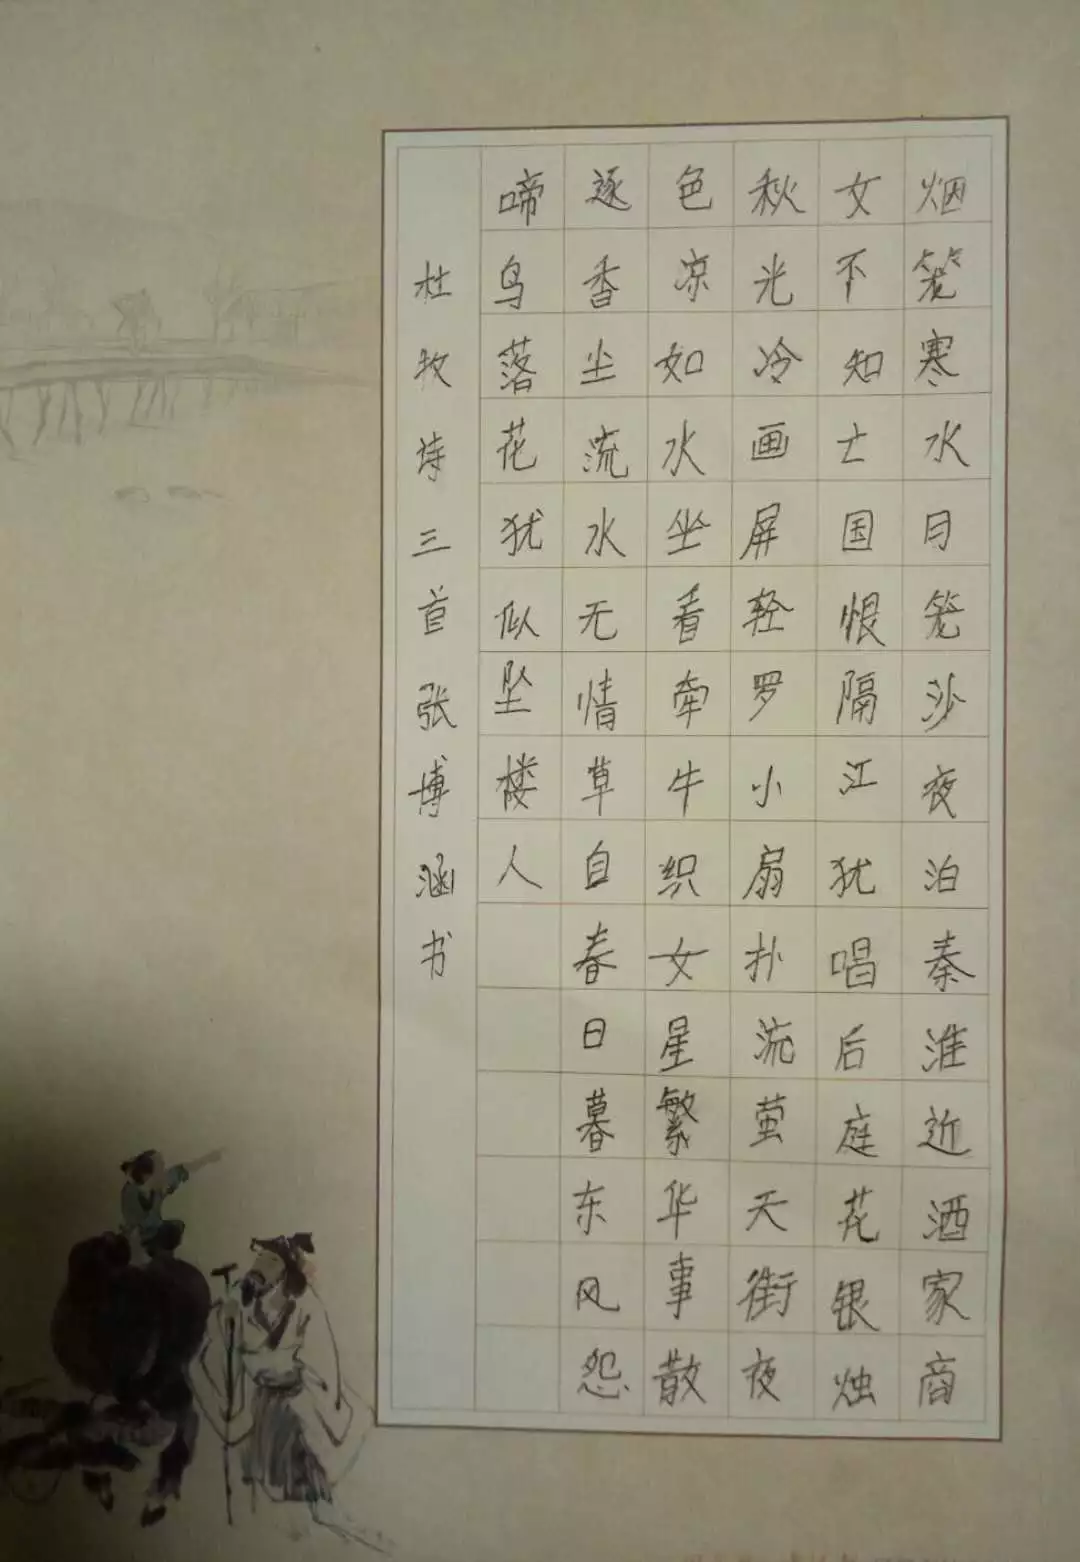 烟笼寒水月笼沙夜泊秦淮近酒家商
女不知亡国恨隔江犹唱后庭花银烛
秋光冷画屏轻罗小扇扑流萤天街夜
色凉如水坐看牵牛织女星繁华事散
逐香尘流水无情草自春日暮东风怨
啼鸟落花犹似坠楼人
杜牧诗三首张博涵书